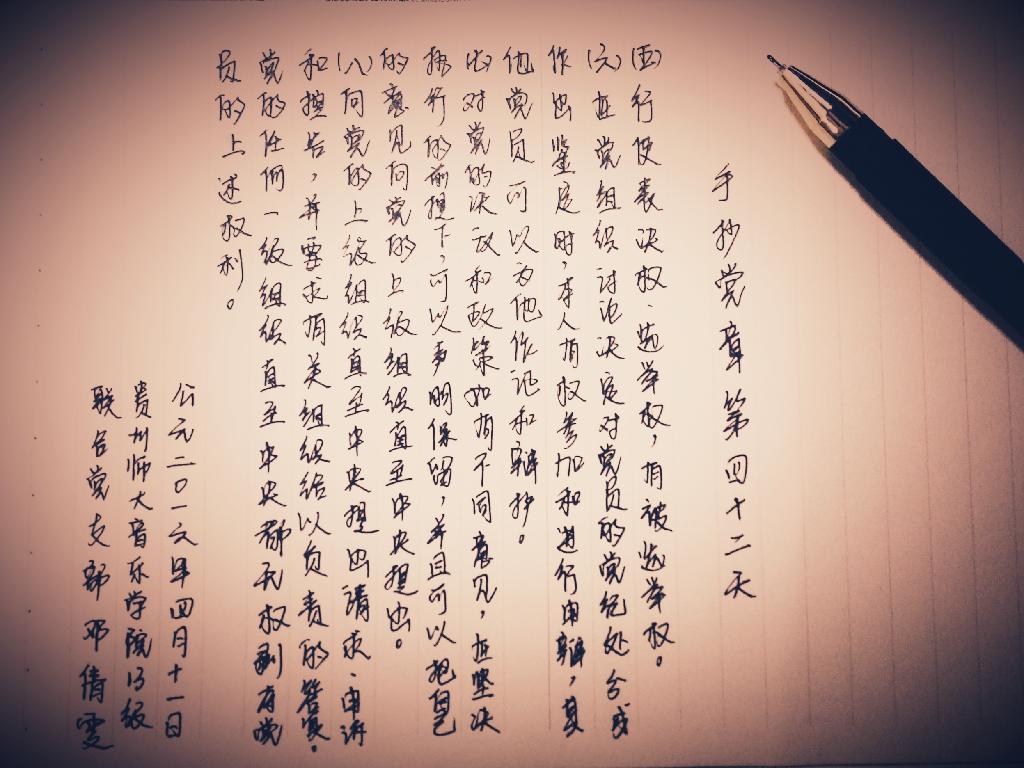 手抄党章第四十二天
(五)行使表决权、选举权，有被选举权。
(六)在党组织讨论决定对党员的党纪处分或
作出鉴定时，本人有权参加和进行申辩，其
他党员可以为他作证和辩护。
(七)对党的决议和政策如有不同意见，在坚决
执行的前提下，可以声明保留，并且可以把自己
的意见向党的上级组织直至中央提出。
(八)向党的上级组织直至中央提出请求、申诉
和控告，并要求有关组织给以负责的答复。
党的任何一级组织直至中央都无权剥夺党
员的上述权利。
公元二〇一六年四月十一日
贵州师大音乐学院13级
联合党支部邓倩雯